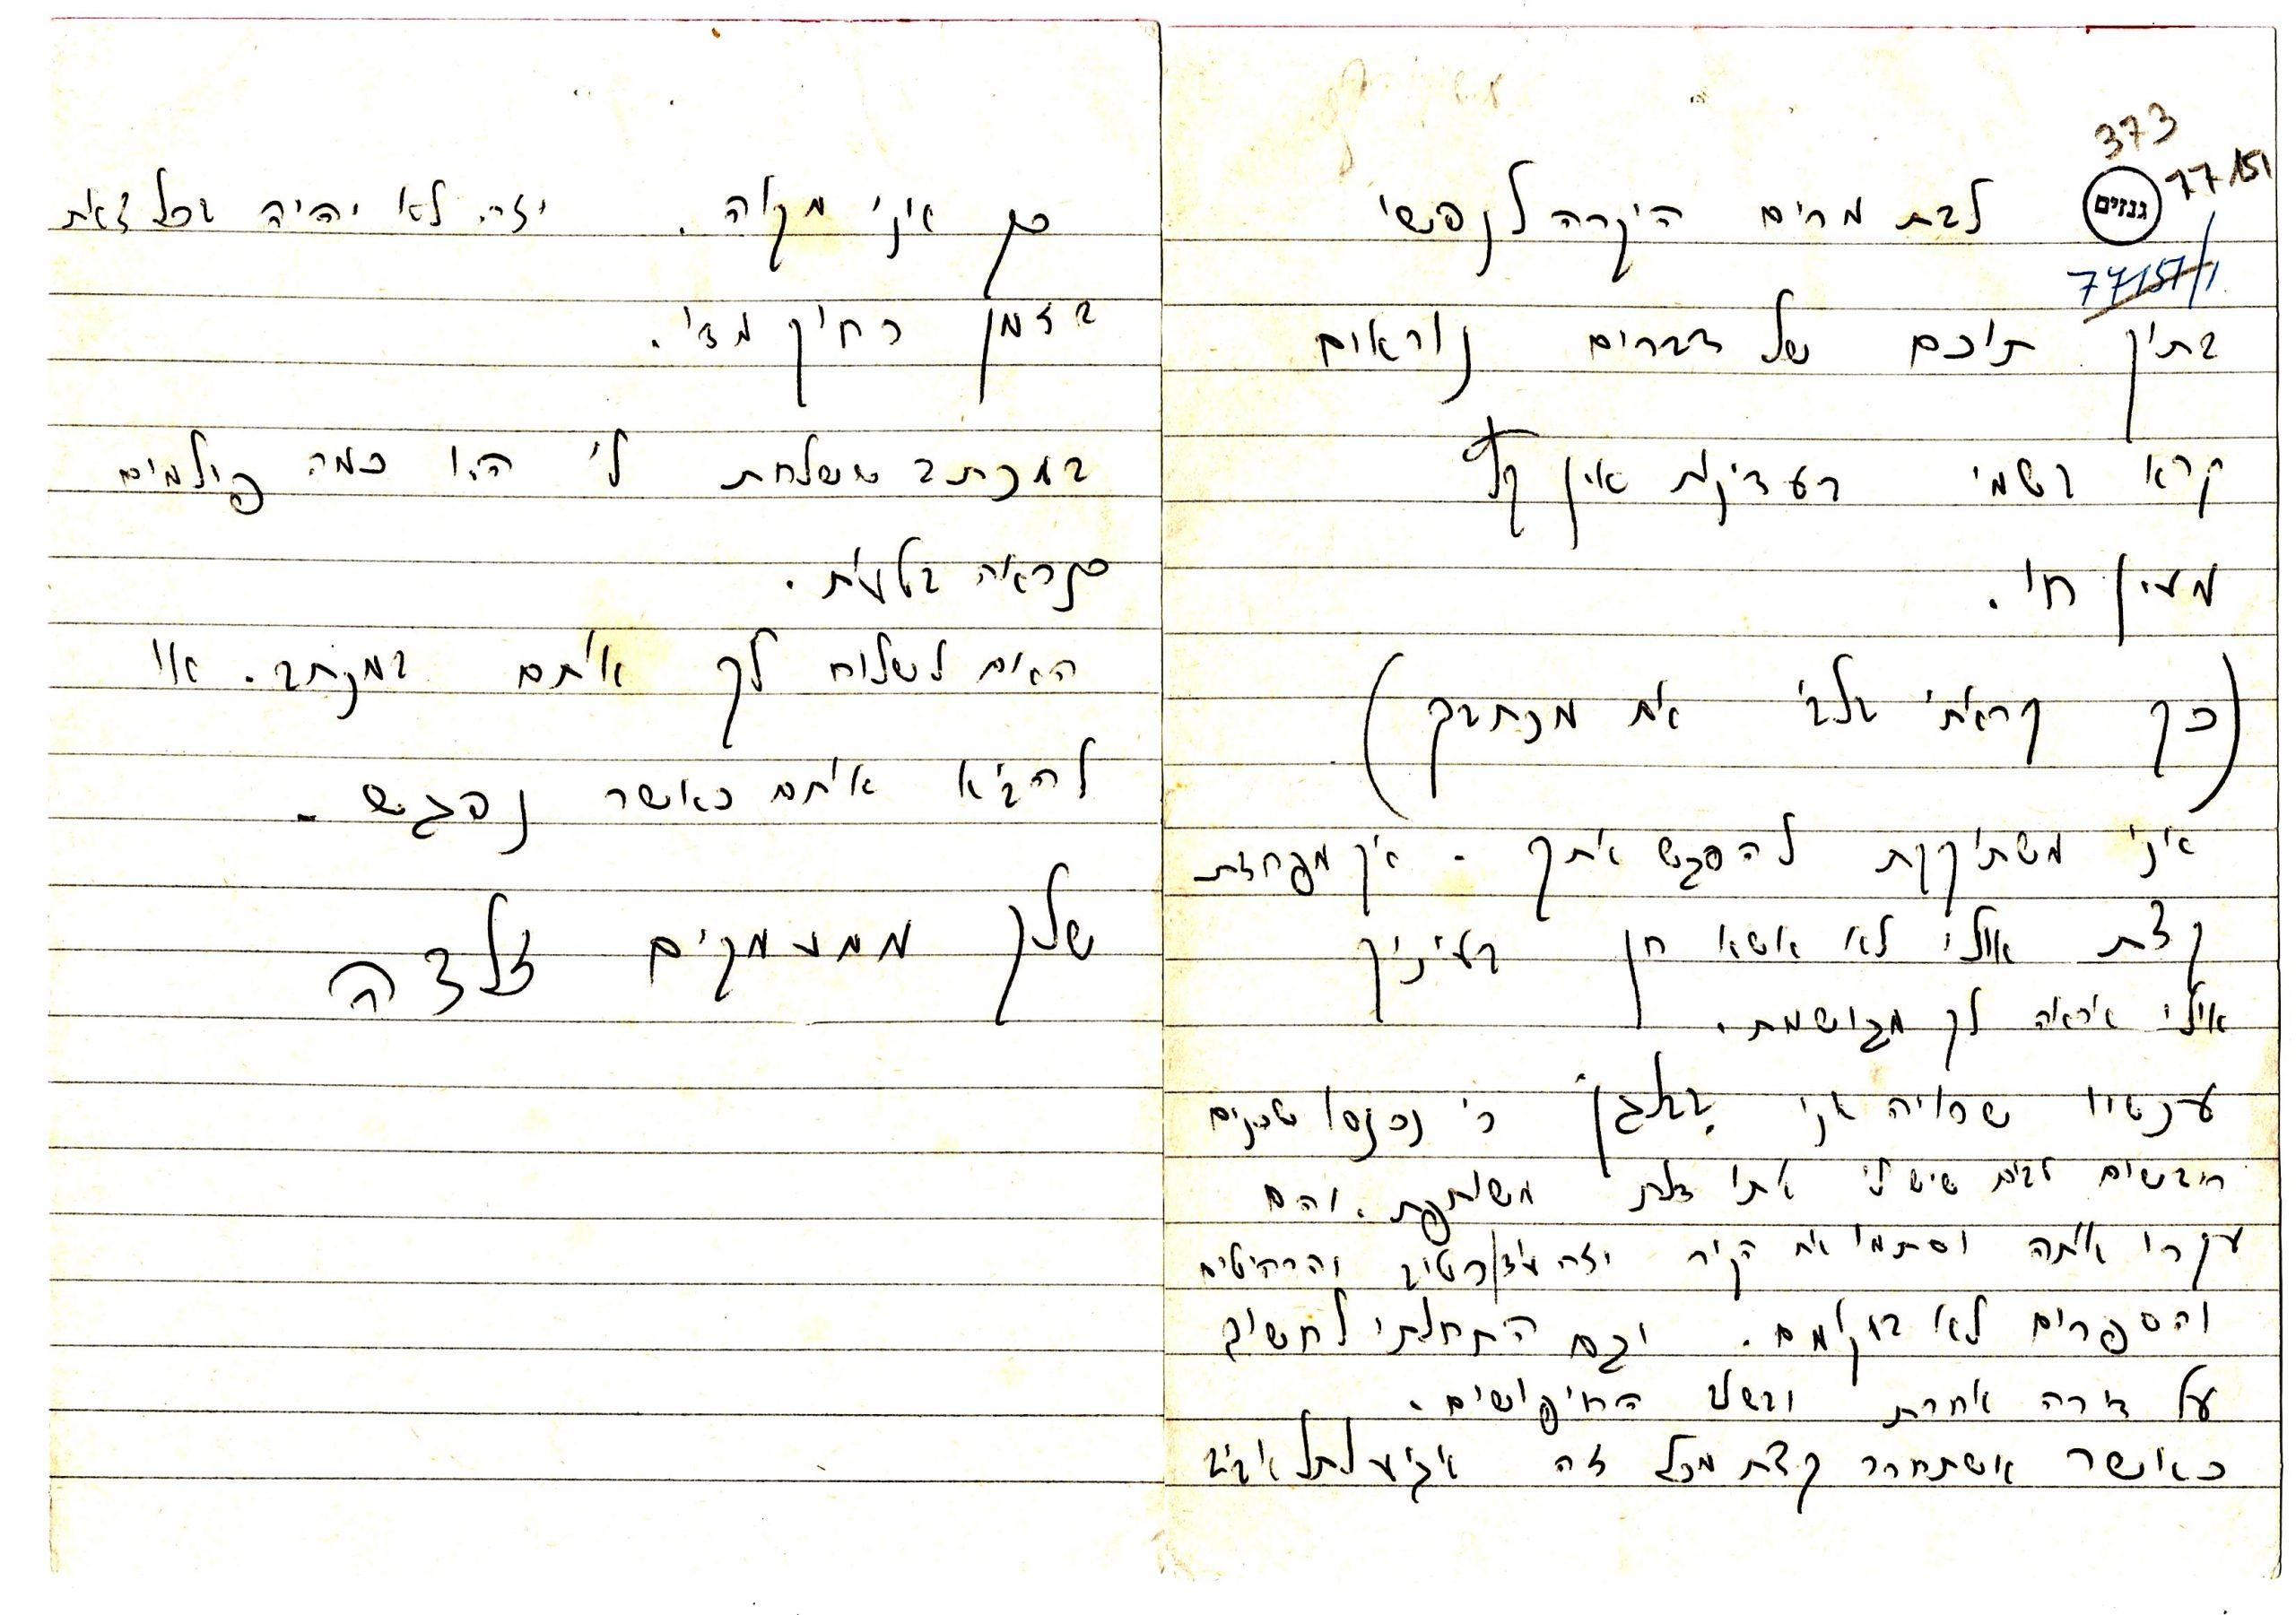 373
77151
גנזים
77157/1
לבת מרים היקרה לנפשי
בתוך תוכם של דברים נוראים
קרא בשמי בעדינות אין קץ
מעין חי.
(כך קראתי בלבי את מכתבך)
אני משתוקקת להפגש אתך. אך מפחדת
קצת אולי לא אשא חן בעיניך
אולי אראה לך מגושמת.
עכשיו שרויה אני בבלגן כי נכנסו שכנים
חדשים לבית שיש לי אתו דלת משותפת. והם
עקרו אותה וסתמו את הקיר וזה עוד רטוב והרהיטים
והספרים לא במקומם. וגם התחלתי לחשוב
על דירה אחרת ובשלב החיפושים.
כאשר אשתחרר קצת מכל זה אגיע לתל אביב
כך אני מקוה. וזה לא יהיה בכל זאת
בזמן רחוק מדי.
במכתב ששלחת לי היו כמה צילומים
כנראה בטעות.
האם לשלוח לך אותם במכתב. או
להביא אותם כאשר נפגש.
שלך ממעמקים זלדה